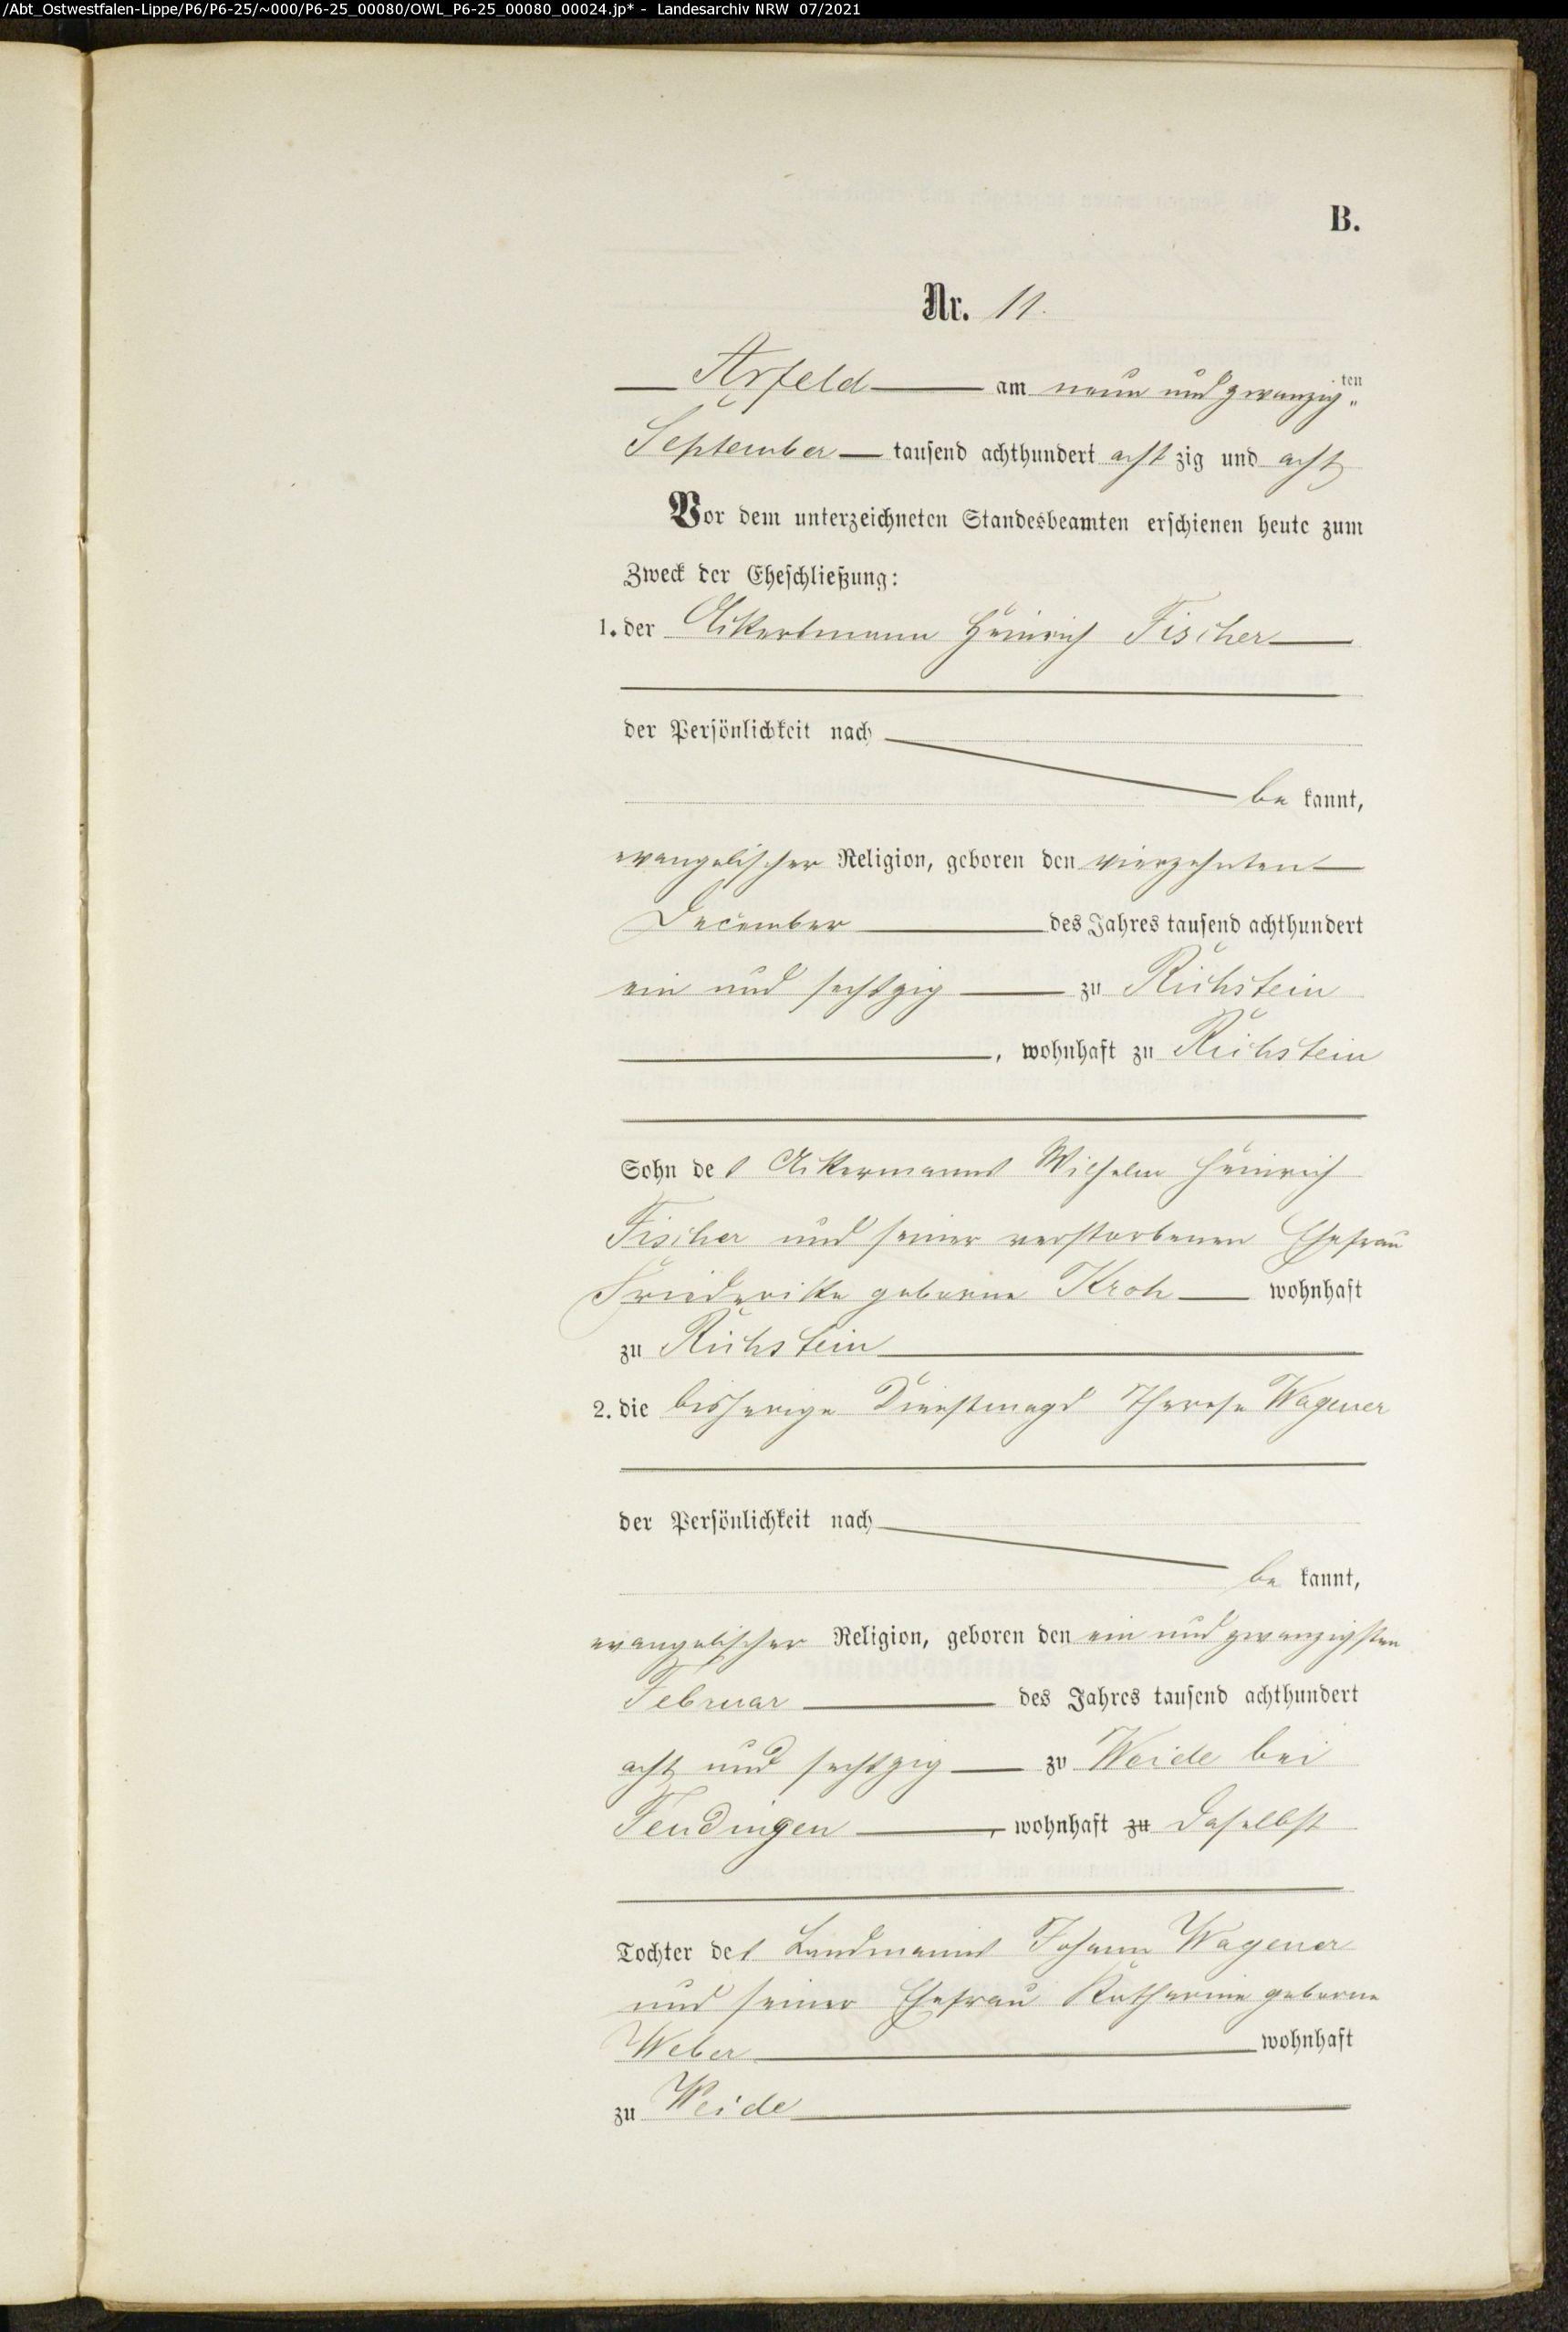 /Abt_Ostwestfalen-Lippe/P6/P6-25/~000/P6-25_00080/OWL_P6-25_00080_00024.jp* - Landesarchiv NRW 07/2021
B.
Nr. 11.
Arfeld am neun und zwanzig ten
September tausend achthundert acht zig und acht
Vor dem unterzeichneten Standesbeamten erschienen heute zum
Zweck der Eheschließung:
1. der Heinrich Fischer
der Persönlichkeit nach
be kannt,
evangelischer Religion, geboren den vierzehnten
December des Jahres tausend achthundert
ein und sechszig zu Richstein
, wohnhaft zu Richstein
Sohn des Ackermanns Wilhelm Heinrich
Fischer und seiner verstorbenen Ehefrau
Friederike geborne Kroh wohnhaft
zu Richstein
2. die bisherige Dienstmagd Therese Wagener
der Persönlichkeit nach
be kannt,
evangelischer Religion, geboren den ein und zwanzigsten
Februar des Jahres tausend achthundert
acht und sechszig zu Weide bei
Feudingen, wohnhaft zu daselbst
Tochter des Landmanns Johann Wagener
und seiner Ehefrau Katharine geborne
Weber wohnhaft
zu Weide